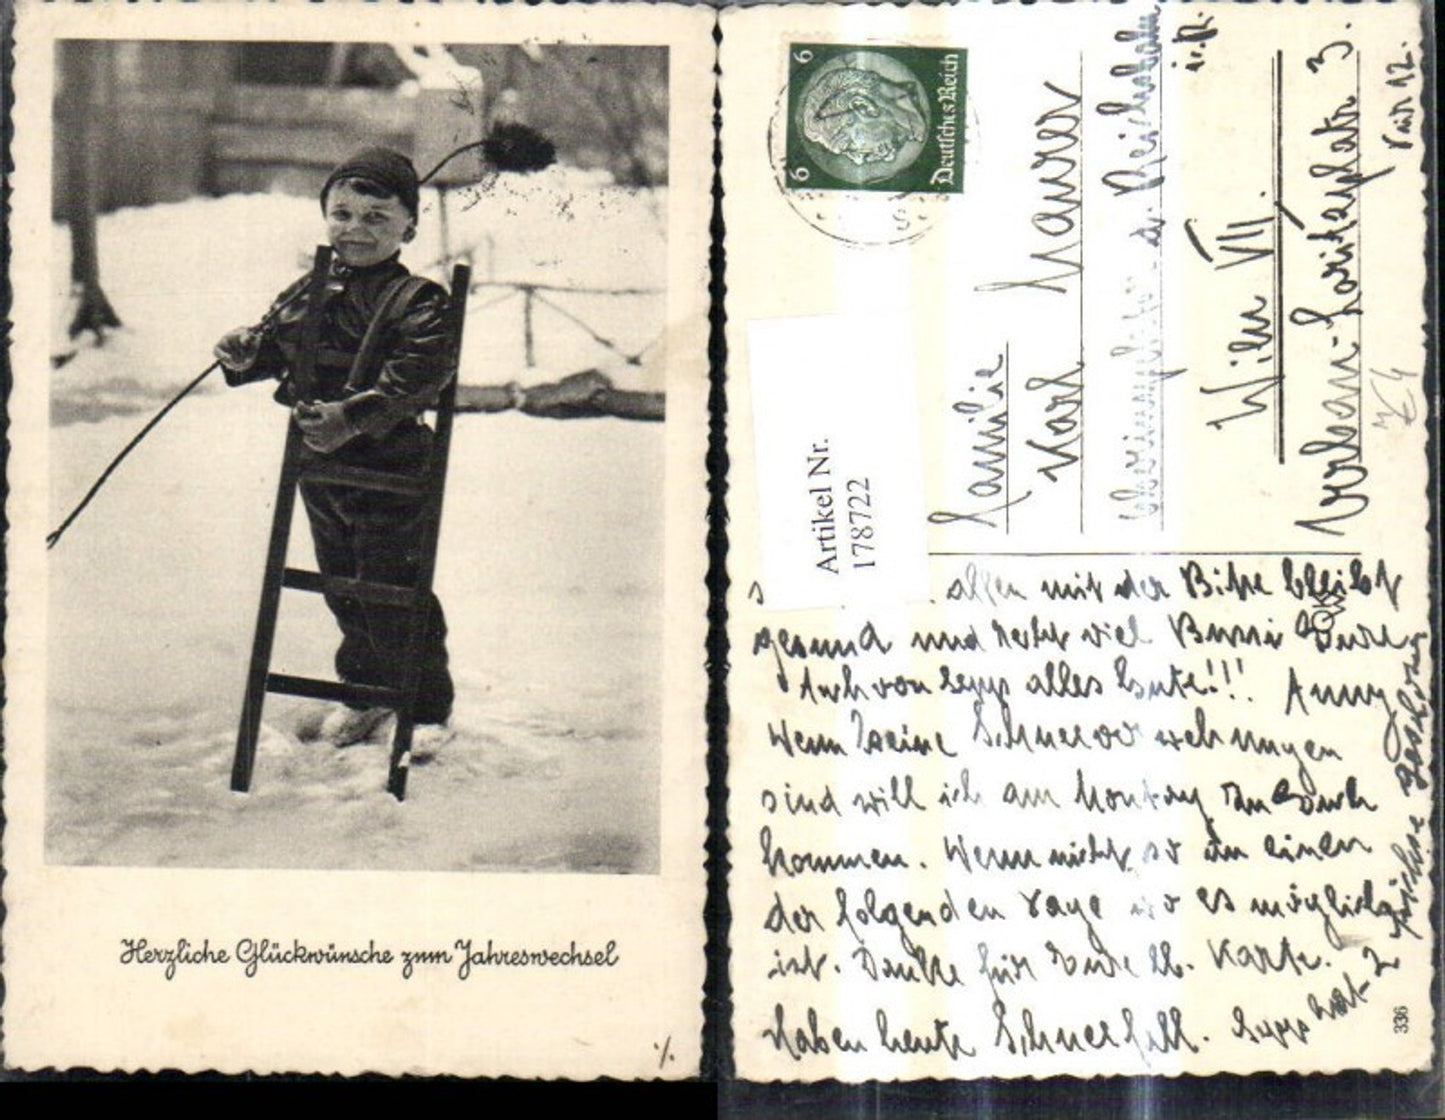 Herzliche Glückwünsche zum Jahreswechsel
6
6
Deutsches Reich
Artikel Nr.
178722
Familie
Karl Maurer
d. Reichsbahn
i. R.
Wien VII.
3.
Tür 12.
€4
allen mit der Bitte bleibt
gesund und viel Bussi Eure
Auch von Sepp alles Gute!!! Anny
Wenn keine Schneeverwehungen
sind will ich am Montag zu Euch
kommen. Wenn nicht so an einen
der folgenden Tage wo es möglich
ist. Danke für Eure lb. Karte.
Haben heute Schneefall. Sepp hat
336